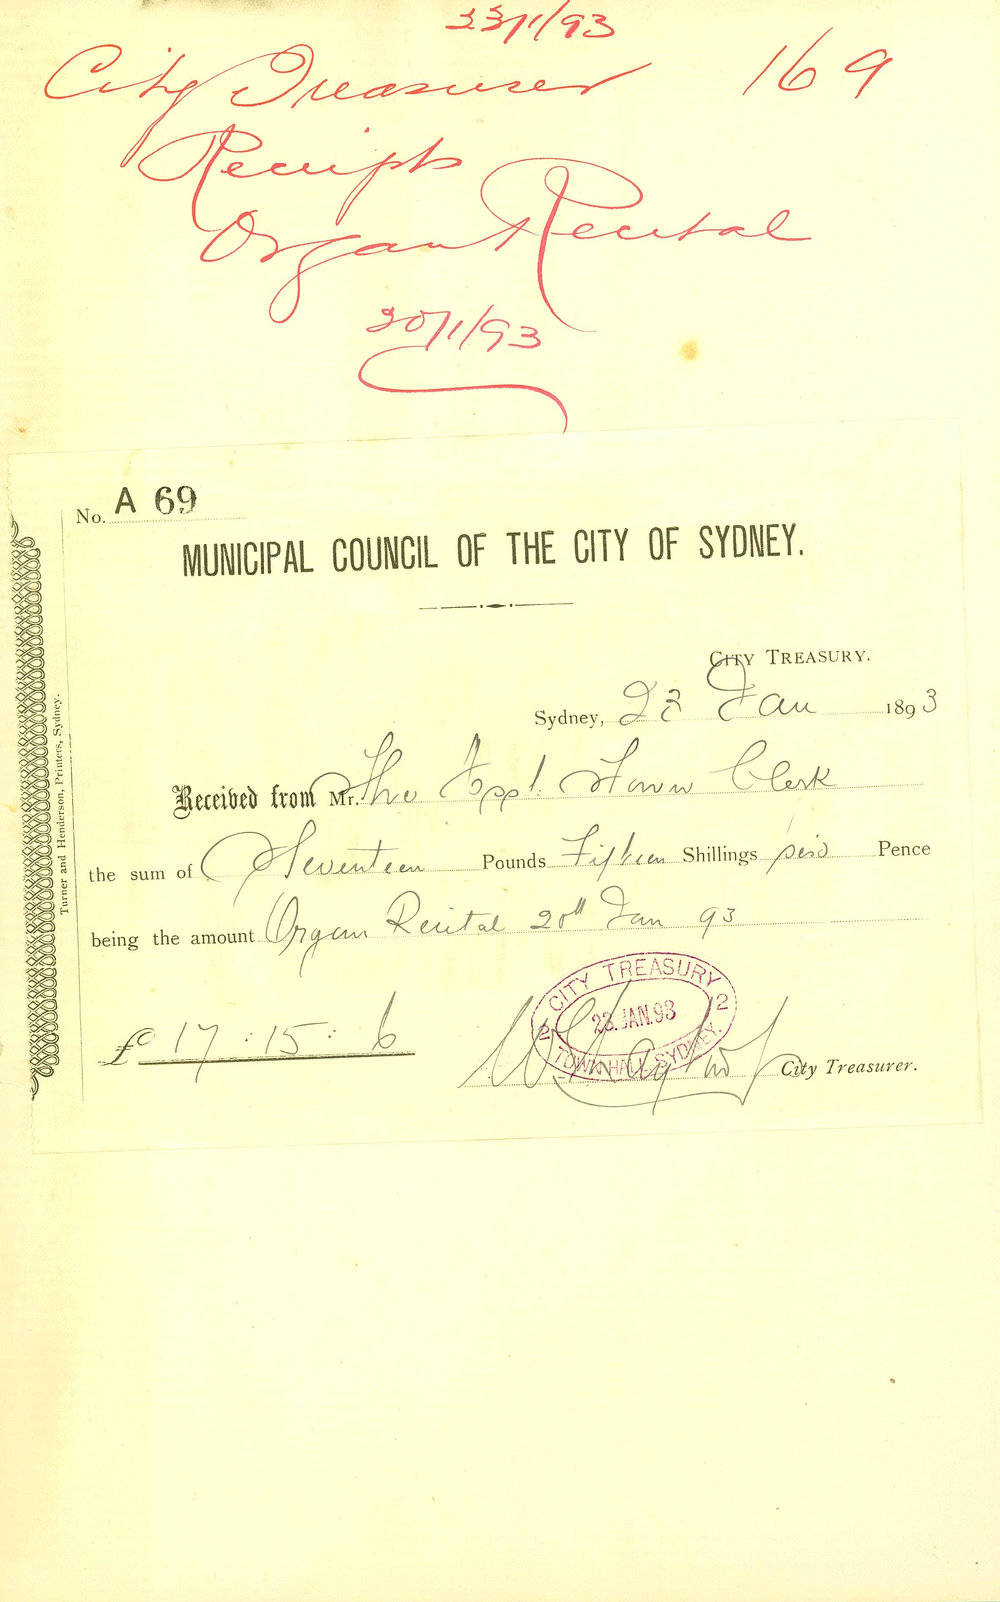 23/1/93
City Treasurer 169
Receipts
Organ Recital
20/1/93
No. A 69
MUNICIPAL COUNCIL OF THE CITY OF SYDNEY.
CITY TREASURY.
Sydney, 23 Jan 1893
Received from Mr. The Town Clerk
the sum of Seventeen Pounds Fifteen Shillings Pence
being the amount Organ Recital 20th Jan 93
£ 17 : 15 : 6
CITY TREASURY
2 23.JAN.93 2
TOWN HALL SYDNEY.
City Treasurer.
Turner and Henderson, Printers, Sydney.